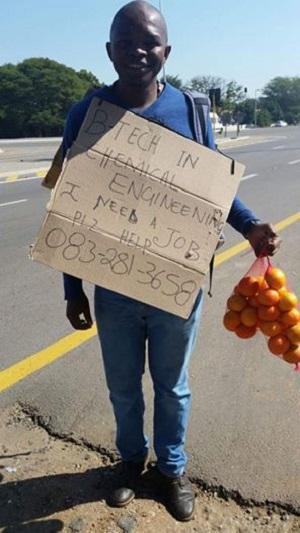 B-TECH IN
CHEMICAL
ENGINEERING
I NEED A JOB
PLZ HELP
083-281 3658